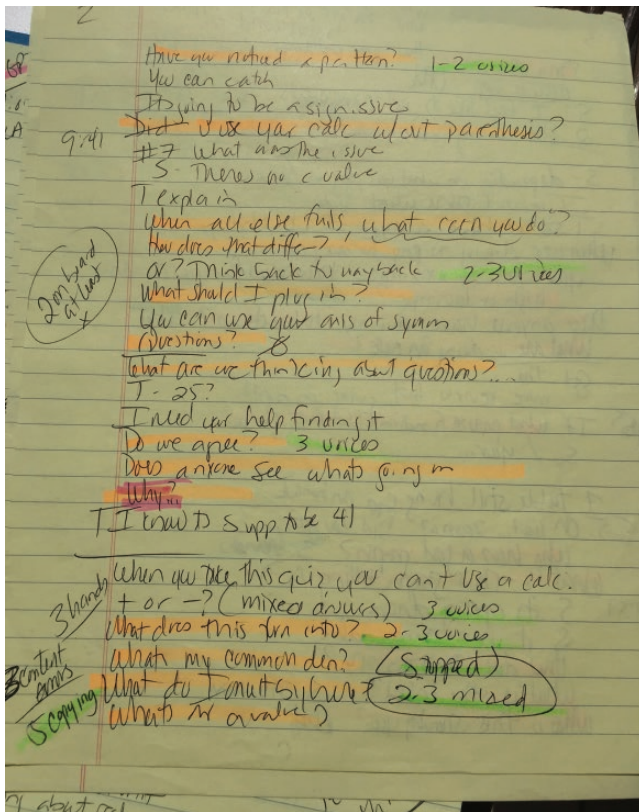 2
Have you noticed a pattern? 1-2 voices
You can catch
Its going to be a sign issue
Did u use your calc w/out parenthesis?
9:41
#7 what was the issue
S - Theres no c value
T explain
When all else fails, what can you do?
How does that differ?
or? Think back to wayback 2-3 voices
2 on board at least x
What should I plug in?
You can use your axis of symm
Questions?
What are we thinking about questions?...
T - 25?
I need your help finding it
Do we agree? 3 voices
Does anyone see whats going on
Why?
T I know its supp to be 41
When you take this quiz you can't use a calc.
3 hands
+ or -? (mixed answers) 3 voices
What does this turn into? 2-3 voices
Whats my common den? (Stopped)
3 content errors
What do I mult by here? 2-3 mixed
5 copying
Whats my a value?
about